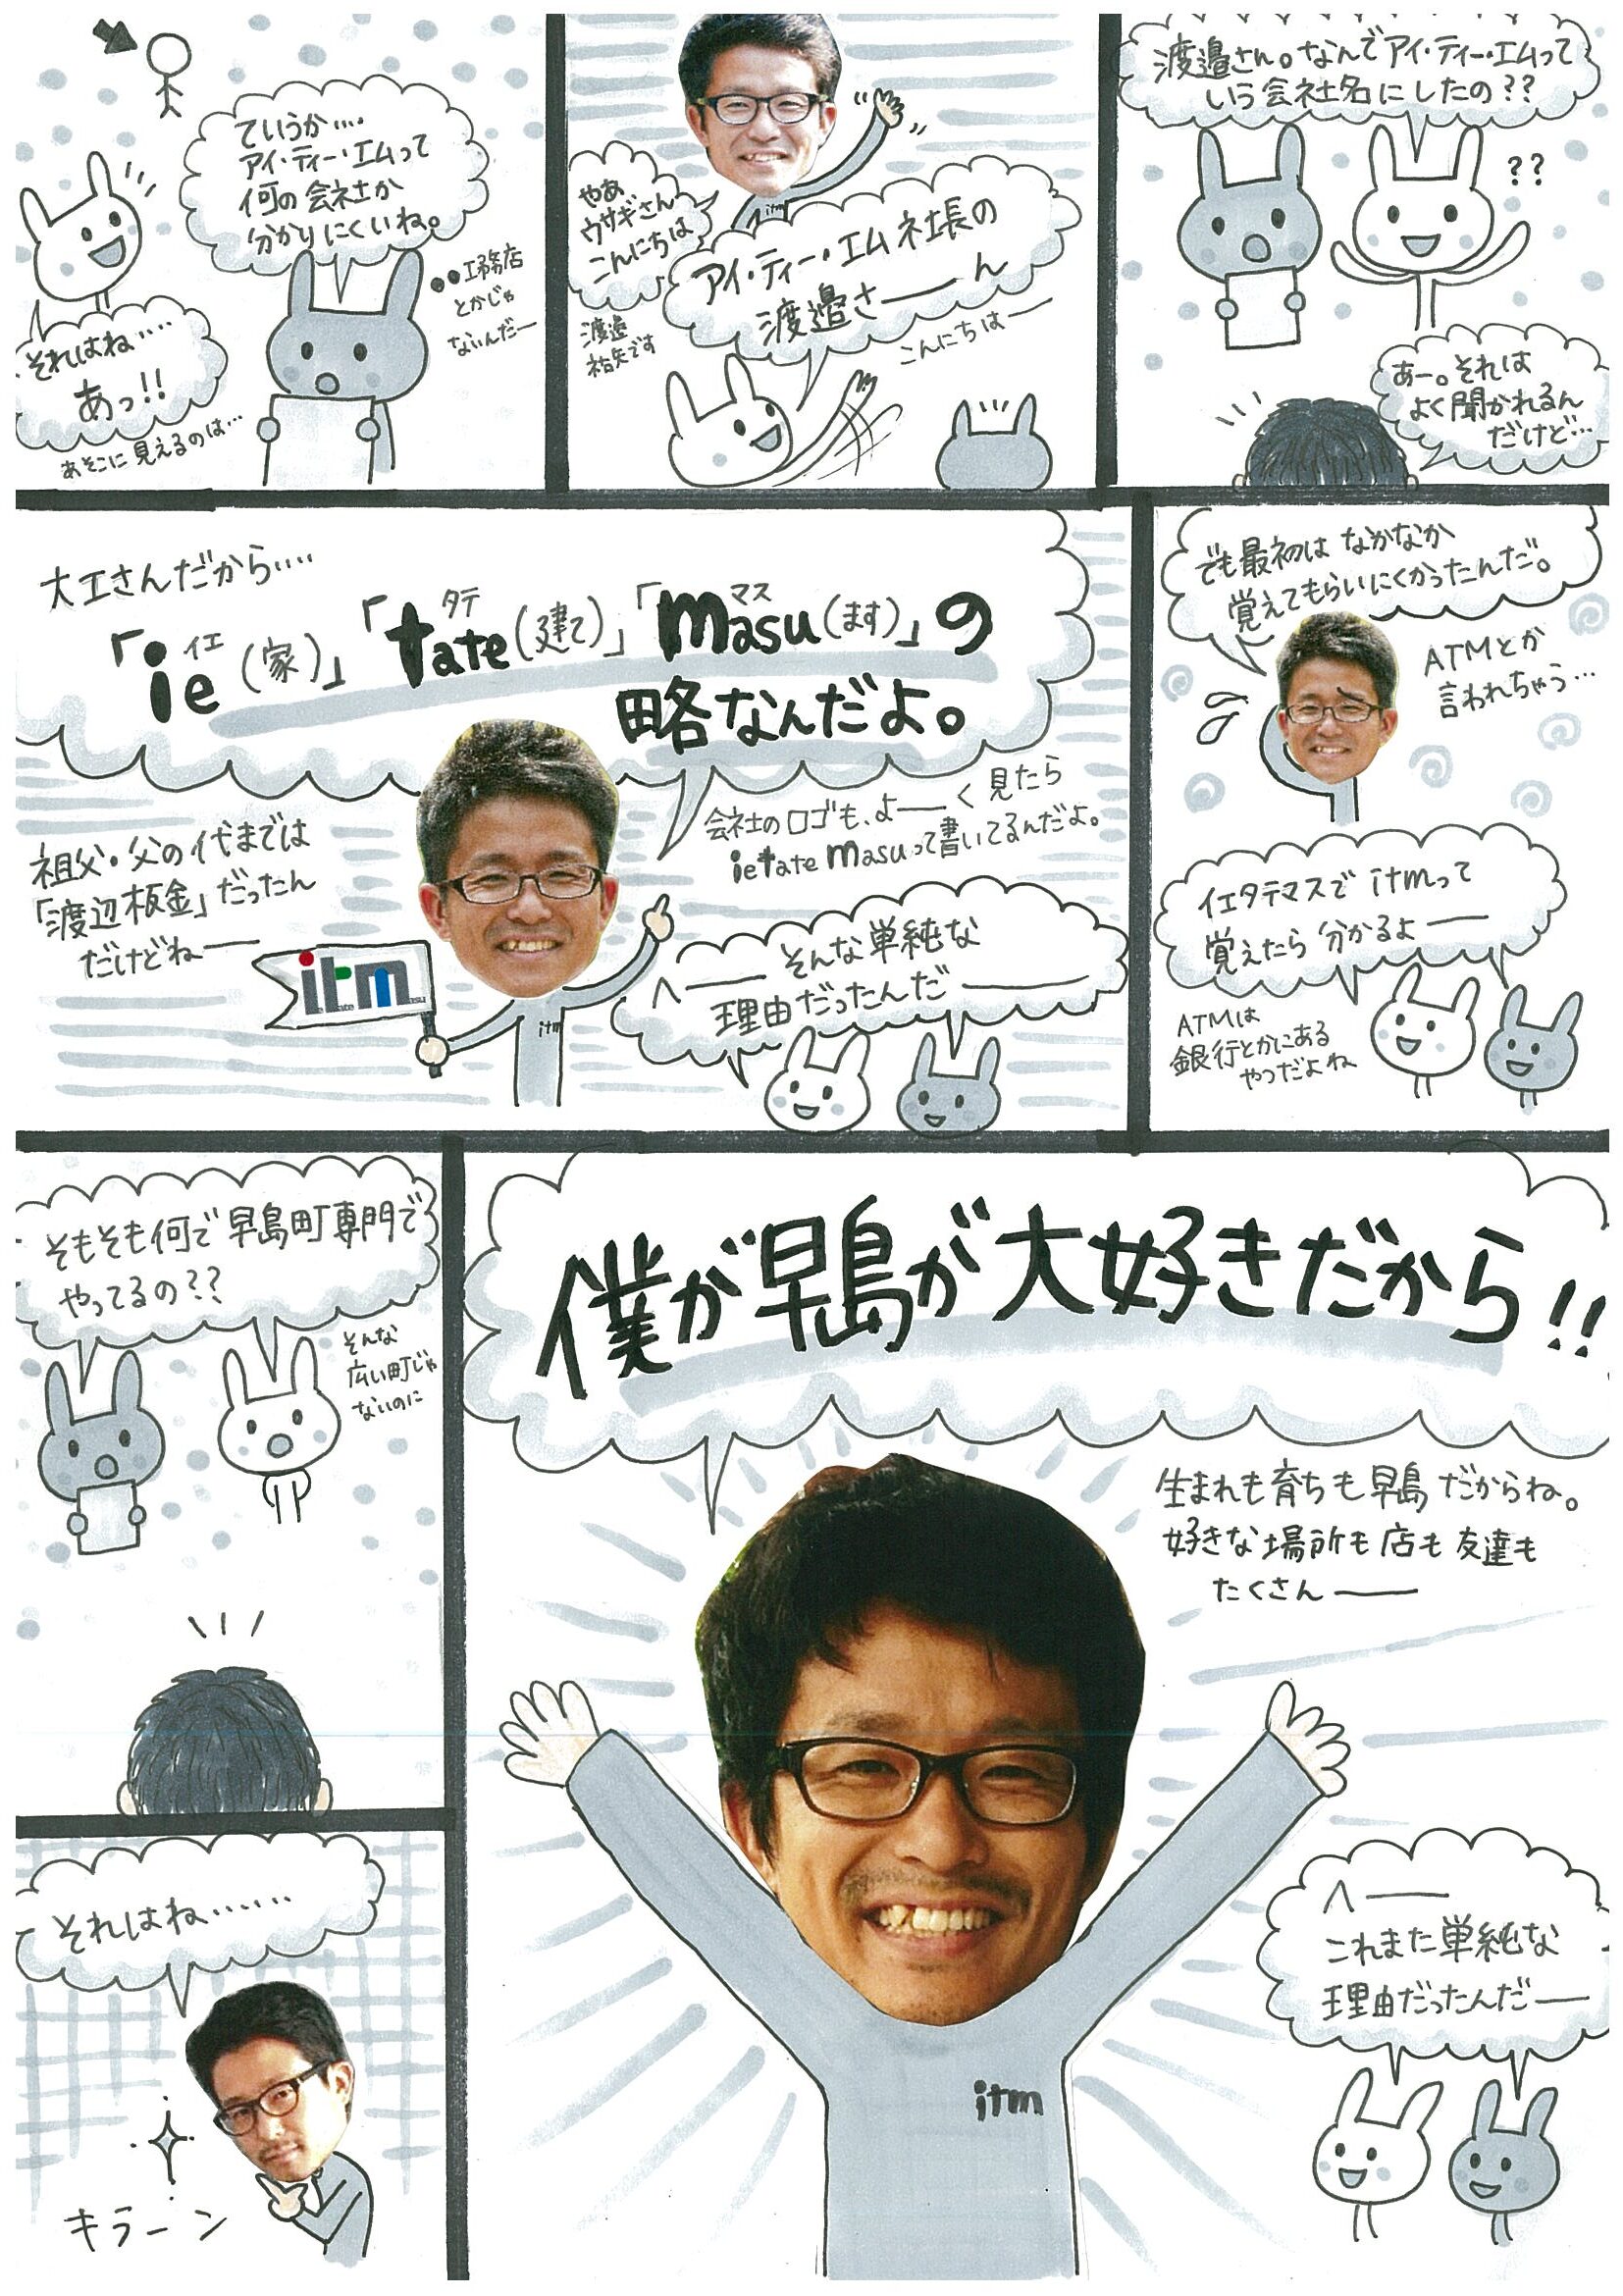 ていうか…。
アイ・ティー・エムって
何の会社か
分かりにくいね。
●●工務店
とかじゃ
ないんだー
それはね‥‥
あっ!!
あそこに見えるのは…
やあ
ウサギさん
こんにちは
渡邉
祐矢です
itm
アイ・ティー・エム社長の
渡邉さーーん
こんにちはー
渡邉さん。なんでアイ・ティー・エムって
いう会社名にしたの??
??
あー。それは
よく聞かれるん
だけど…
大工さんだから‥‥
「ie(家)」「tate(建て)」「masu(ます)」の
イエ
タテ
マス
略なんだよ。
祖父・父の代までは
「渡辺板金」だったん
だけどねー
会社のロゴも、よーーく見たら
ietate masuって書いてるんだよ。
itm
ate
asu
itm
へーーそんな単純な
理由だったんだーー
でも最初はなかなか
覚えてもらいにくかったんだ。
ATMとか
言われちゃう…
イエタテマスでitmって
覚えたら分かるよー
ATMは
銀行とかにある
やつだよね
そもそも何で早島町専門で
やってるの??
そんな
広い町じゃ
ないのに
それはね……
キラーン
僕が早島が大好きだから!!
生まれも育ちも早島だからね。
好きな場所も店も友達も
たくさんーー
itm
へーー
これまた単純な
理由だったんだー